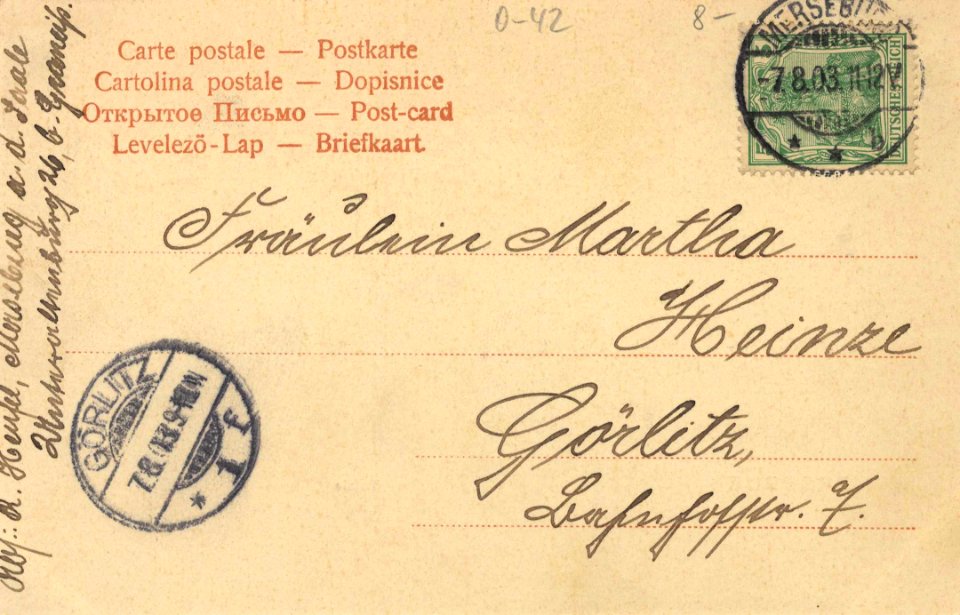 0-42
8-
Carte postale — Postkarte
Cartolina postale — Dopisnice
Открытое Письмо — Post-card
Levelező-Lap — Briefkaart.
MERSEBURG
-7.8.03.11-12V.
* * b
DEUTSCHES REICH
Fräulein Martha
Heinze
Görlitz,
Bahnhofstr. 7.
GÖRLITZ
7.8.03.9-10N
* 1 f
Abs.: R. Hempel, Merseburg a. d. Saale
Unteraltenburg 26, b.